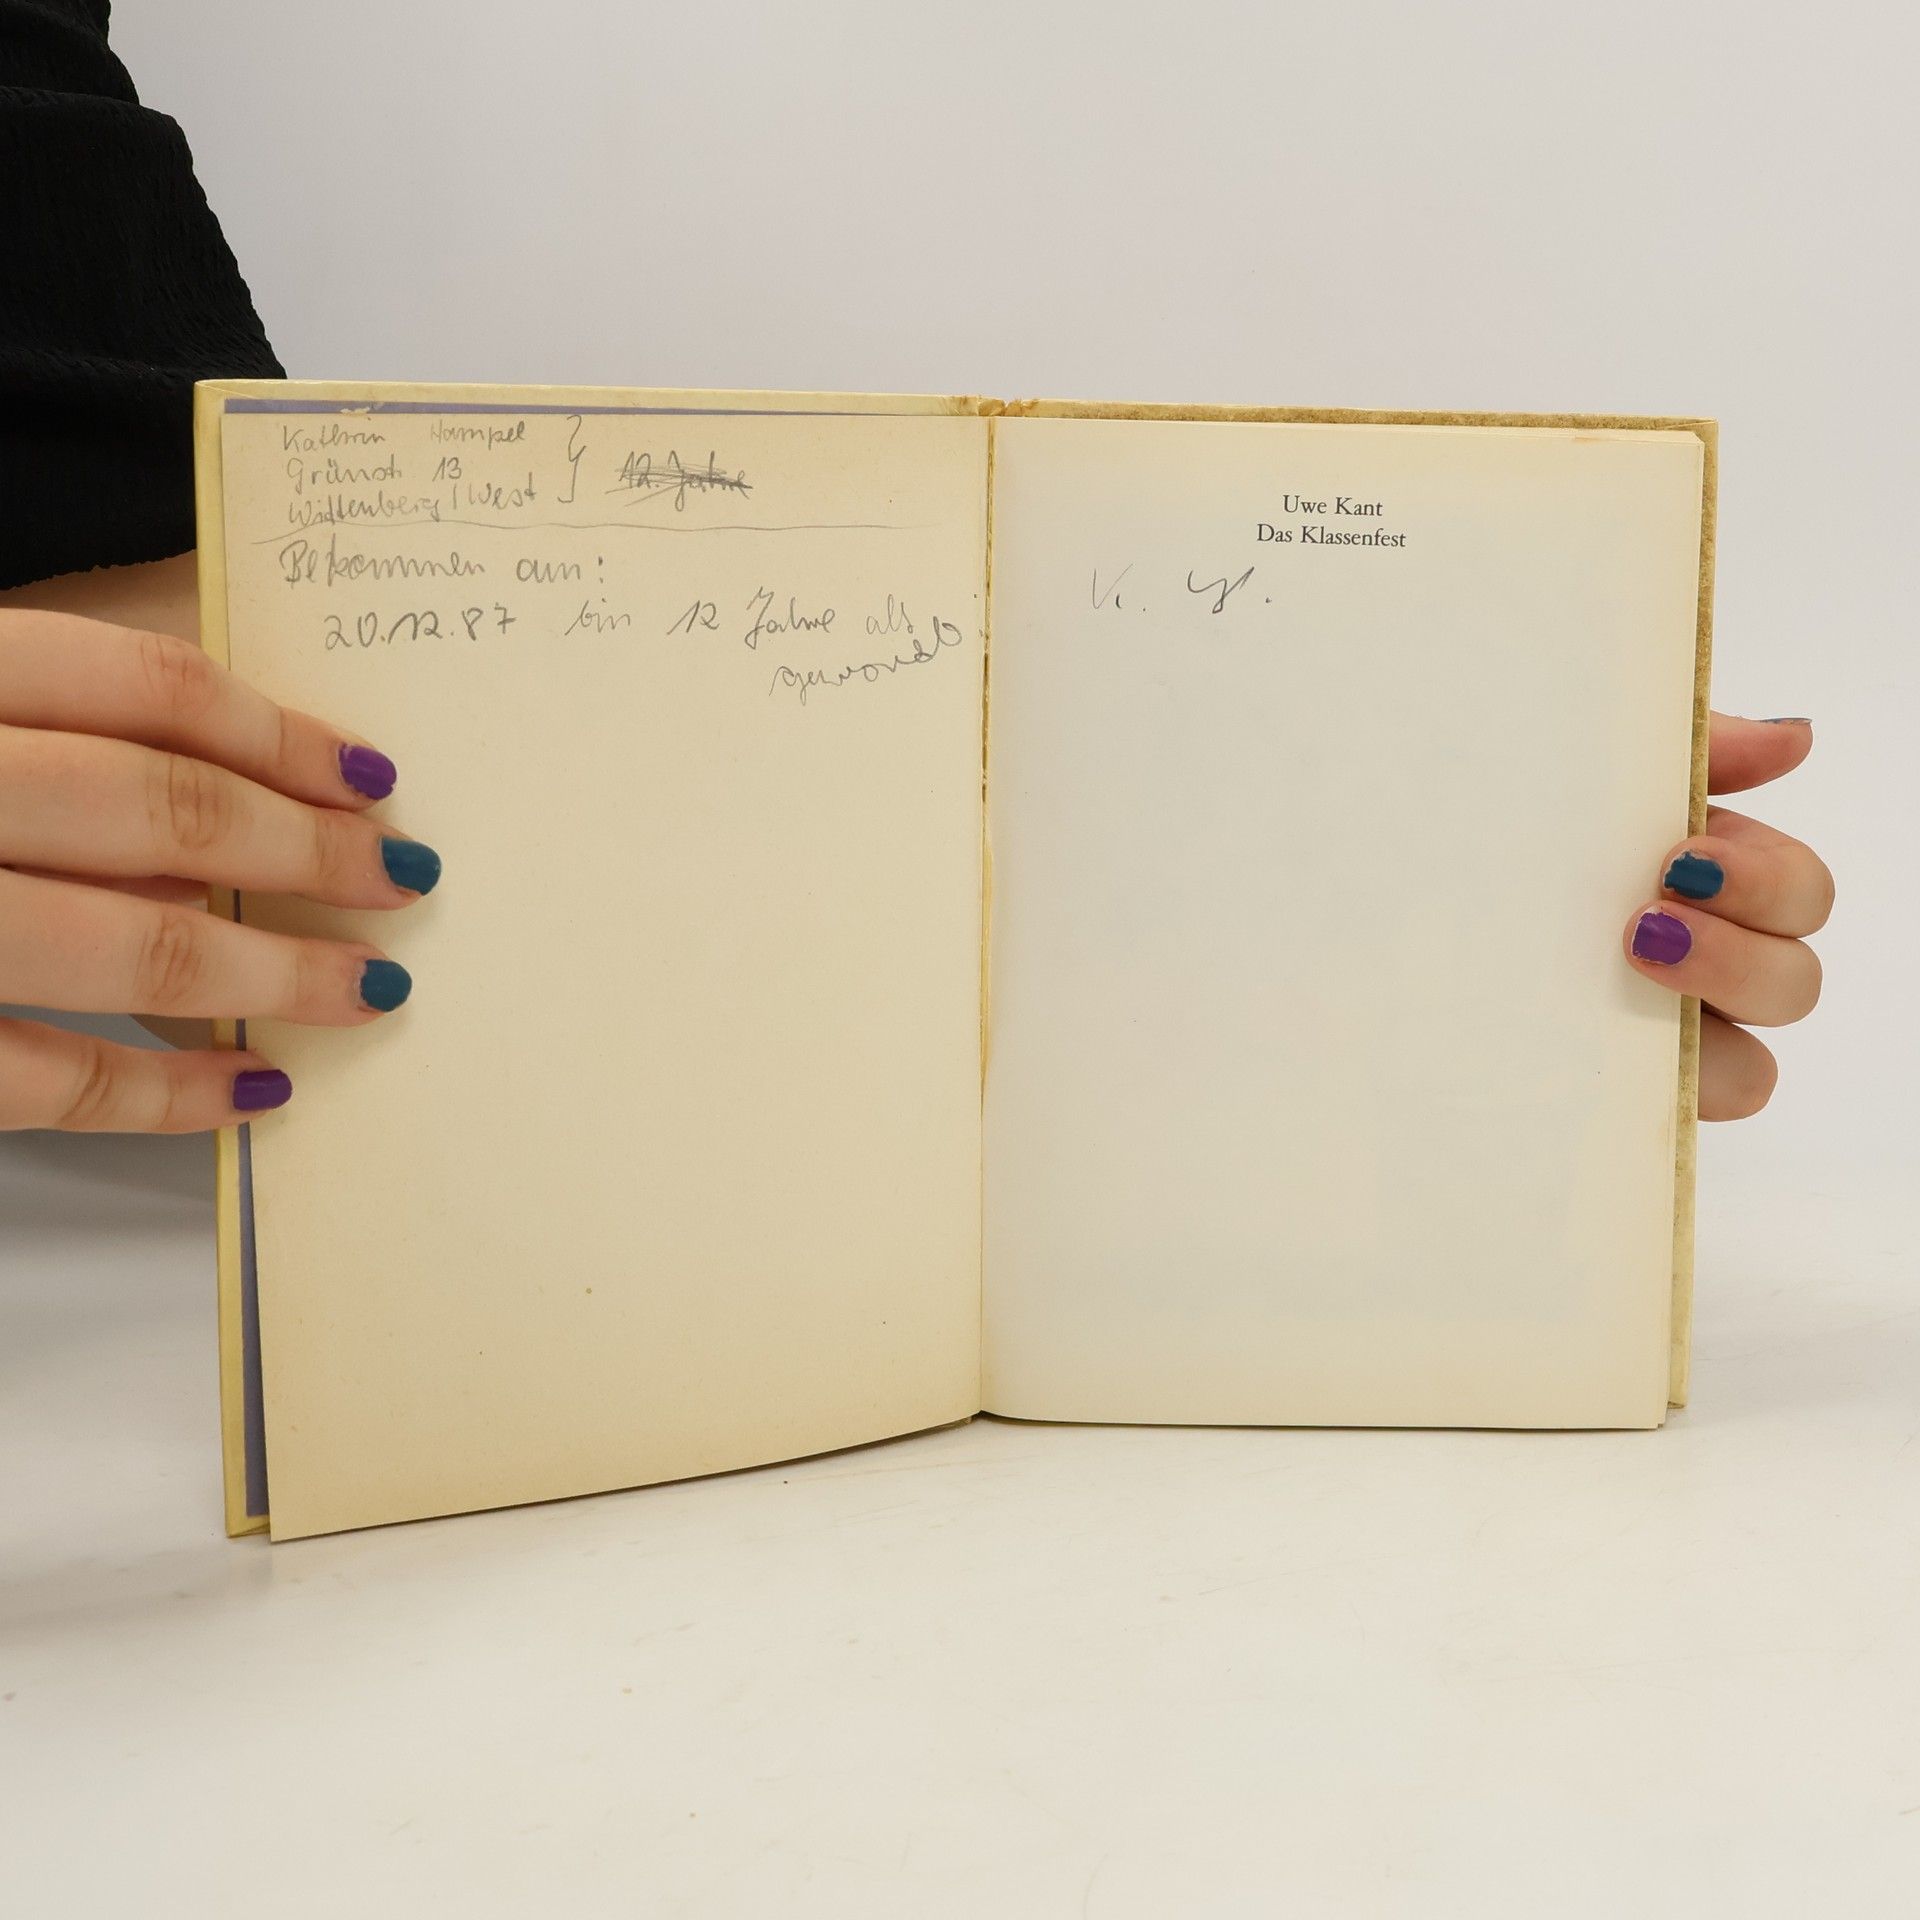 Kathrin Hampel
Grünstr. 13
Wittenberg/West
12. Jahre
Bekommen am:
20.12.87 bin 12 Jahre alt
geworden
Uwe Kant
Das Klassenfest
K. H.